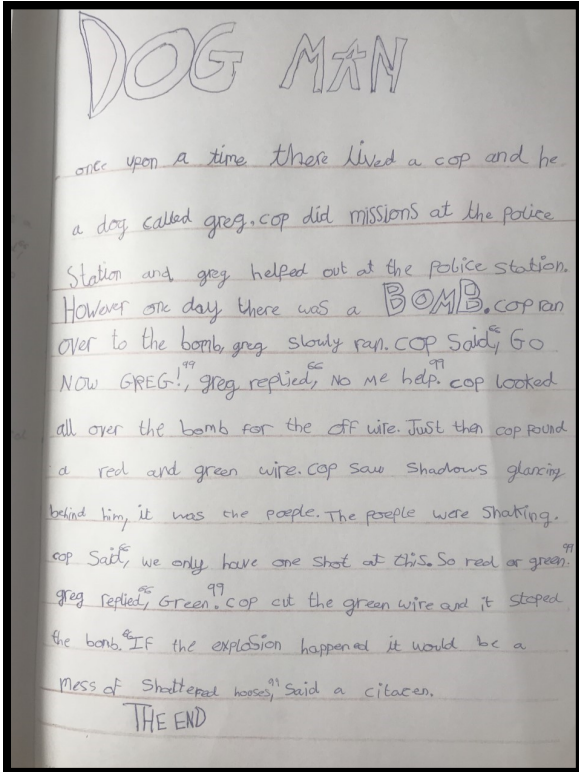 DOG MAN
once upon a time there lived a cop and he
a dog called greg. cop did missions at the police
Station and greg helped out at the police station.
However one day there was a BOMB. cop ran
over to the bomb, greg slowly ran. cop Said, “Go
NOW GREG!”, greg replied, “No me help.” cop looked
all over the bomb for the off wire. Just then cop found
a red and green wire. cop saw shadows glancing
behind him, it was the poeple. The poeple were shaking.
cop Said, “we only have one shot at this. So red or green.”
greg replied, “Green.” cop cut the green wire and it stoped
the bomb. “If the explosion happened it would be a
mess of shattered hooses,” Said a citacen.
THE END